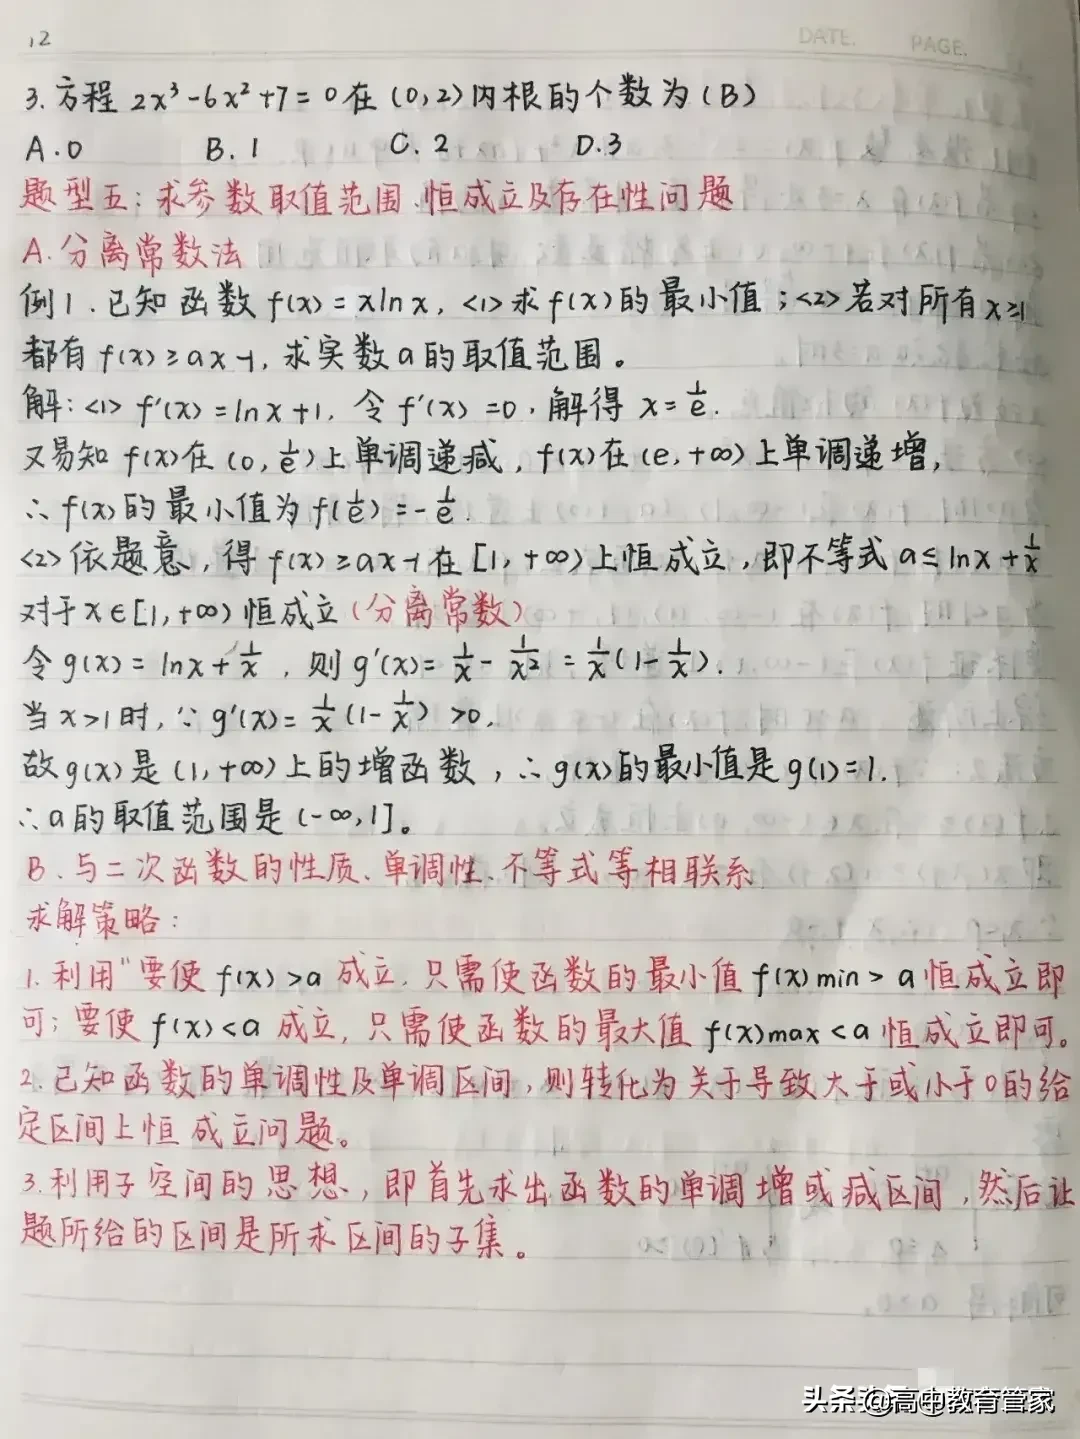 12
DATE. PAGE.
3.方程 2x³-6x²+7=0在(0,2)内根的个数为(B)
A.0 B.1 C.2 D.3
题型五:求参数取值范围、恒成立及存在性问题
A.分离常数法
例1.已知函数f(x)=xlnx,<1>求f(x)的最小值;<2>若对所有x≥1
都有f(x)≥ax-1,求实数a的取值范围。
解:<1> f'(x)=lnx+1,令f'(x)=0,解得 x=1/e.
又易知 f(x)在(0,1/e)上单调递减,f(x)在(e,+∞)上单调递增,
∴f(x)的最小值为f(1/e)=-1/e.
<2>依题意,得f(x)≥ax-1在[1,+∞)上恒成立,即不等式a≤lnx+1/x
对于x∈[1,+∞)恒成立(分离常数)
令g(x)=lnx+1/x,则g'(x)=1/x-1/x²=1/x(1-1/x).
当x>1时,∵g'(x)=1/x(1-1/x)>0,
故g(x)是(1,+∞)上的增函数,∴g(x)的最小值是g(1)=1.
∴a的取值范围是(-∞,1]。
B.与二次函数的性质、单调性、不等式等相联系
求解策略:
1.利用"要使f(x)>a成立,只需使函数的最小值f(x)min>a恒成立即
可;要使f(x)<a成立,只需使函数的最大值f(x)max<a恒成立即可。
2.已知函数的单调性及单调区间,则转化为关于导致大于或小于0的给
定区间上恒成立问题。
3.利用子空间的思想,即首先求出函数的单调增或减区间,然后让
题所给的区间是所求区间的子集。
头条@高中教育管家